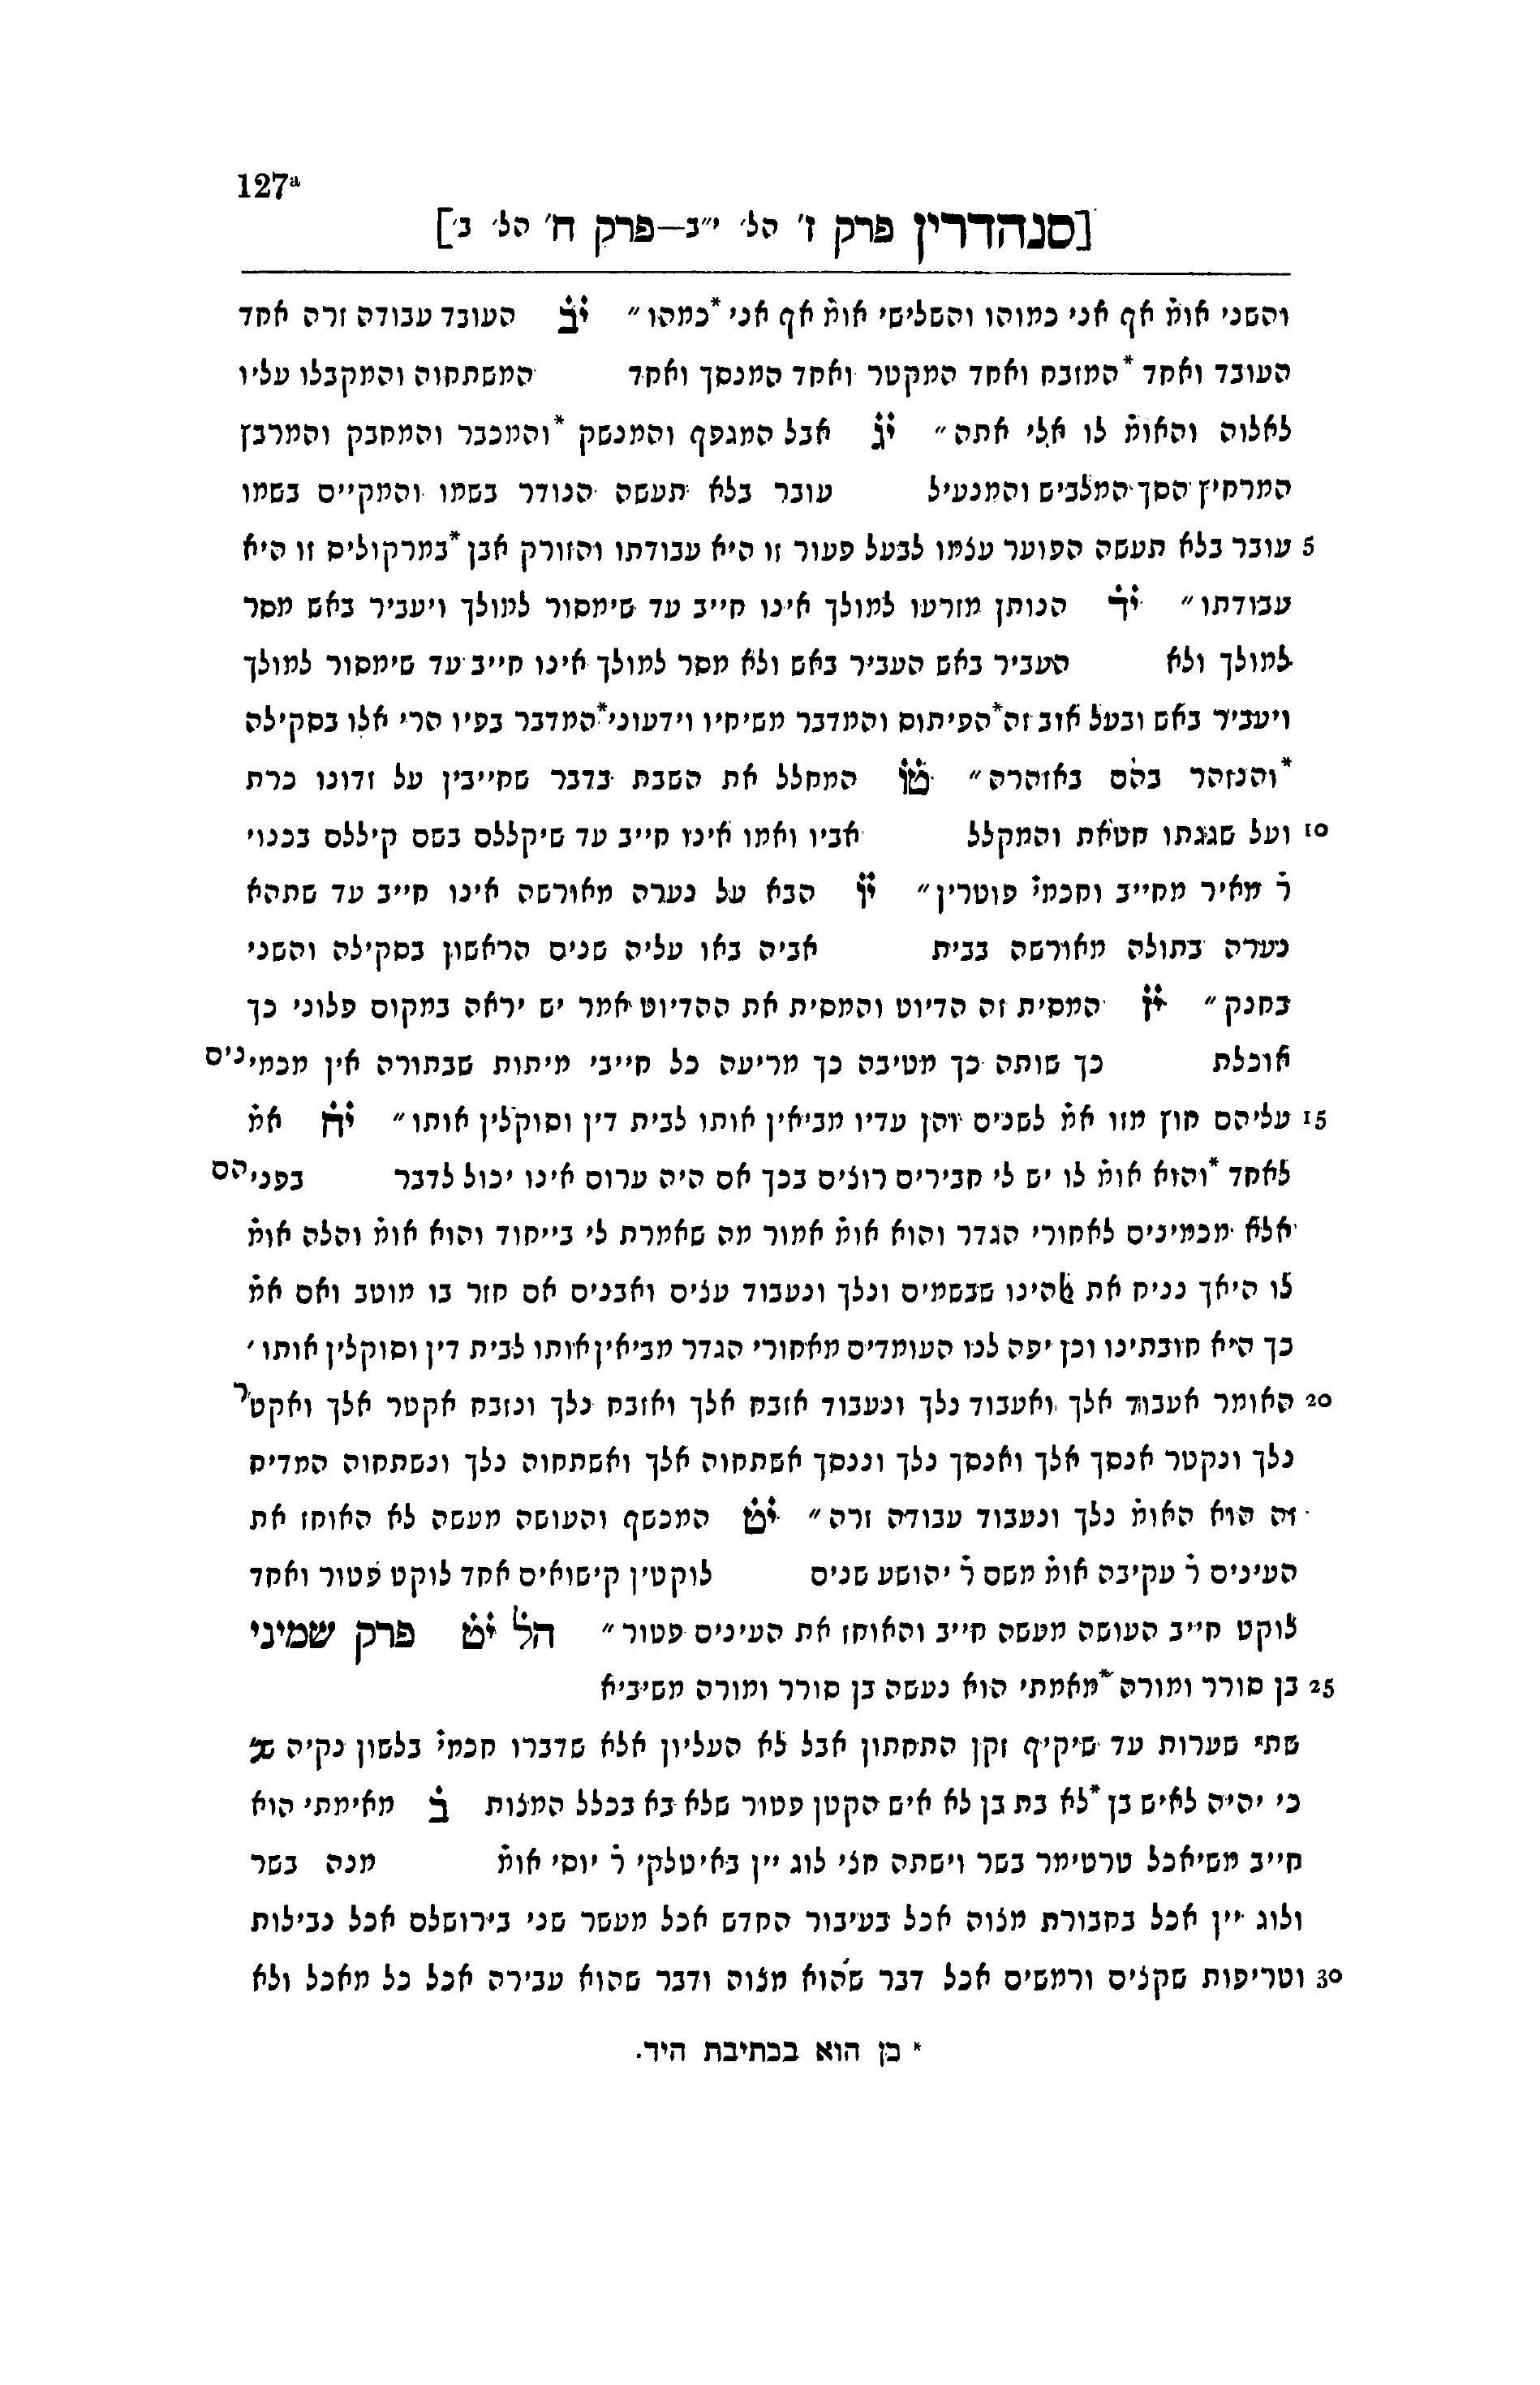 127a
[סנהדרין פרק ז' הל' י"ב—פרק ח' הל' ב']
והשני אומ̇ אף אני כמוהו והשלישי אומ̇ אף אני *כמהו״ יב̇ העובד עבודה זרה אחד
העובד ואחד *המזבח ואחד המקטר ואחד המנסך ואחד המשתחוה והמקבלו עליו
לאלוה והאומ̇ לו אלי אתה״ יג̇ אבל המגפף והמנשק *והמכבד והמחבק והמרבץ
המרחיץ הסך המלביש והמנעיל עובר בלא תעשה הנודר בשמו והמקיים בשמו
5 עובר בלא תעשה הפוער עצמו לבעל פעור זו היא עבודתו והזורק אבן *במרקוליס זו היא
עבודתו״ יד̇ הנותן מזרעו למולך אינו חייב עד שימסור למולך ויעביר באש מסר
למולך ולא העביר באש העביר באש ולא מסר למולך אינו חייב עד שימסור למולך
ויעביר באש ובעל אוב זה *הפיתום והמדבר משיחיו וידעוני *המדבר בפיו הרי אלו בסקילה
*והנזהר בהם באזהרה״ טו̇ המחלל את השבת בדבר שחייבין על זדונו כרת
10 ועל שגגתו חטאת והמקלל אביו ואמו אינו חייב עד שיקללם בשם קיללם בכנוי
ר̇ מאיר מחייב וחכמי̇ פוטרין״ יו̇ הבא על נערה מאורשה אינו חייב עד שתהא
נערה בתולה מאורשה בבית אביה באו עליה שנים הראשון בסקילה והשני
בחנק״ יז̇ המסית זה הדיוט והמסית את ההדיוט אמר יש יראה במקום פלוני כך
אוכלת כך שותה כך מטיבה כך מריעה כל חייבי מיתות שבתורה אין מכמינים
15 עליהם חוץ מזו אמ̇ לשנים והן עדיו מביאין אותו לבית דין וסוקלין אותו״ יח̇ אמ̇
לאחד *והוא אומ̇ לו יש לי חבירים רוצים בכך אם היה ערום אינו יכול לדבר בפניהם
אלא מכמינים לאחורי הגדר והוא אומ̇ אמור מה שאמרת לי בייחוד והוא אומ̇ והלה אומ̇
לו היאך נניח את אלהינו שבשמים ונלך ונעבוד עצים ואבנים אם חזר בו מוטב ואם אמ̇
כך היא חובתינו וכן יפה לנו העומדים מאחורי הגדר מביאין אותו לבית דין וסוקלין אותו׳
20 האומר אעבוד אלך ואעבוד נלך ונעבוד אזבח אלך ואזבח נלך ונזבח אקטר אלך ואקטר
נלך ונקטר אנסך אלך ואנסך נלך וננסך אשתחוה אלך ואשתחוה נלך ונשתחוה המדיח
זה הוא האומ̇ נלך ונעבוד עבודה זרה״ יט̇ המכשף והעושה מעשה לא האוחז את
העינים ר̇ עקיבה אומ̇ משם ר̇ יהושע שנים לוקטין קישואים אחד לוקט פטור ואחד
לוקט חייב העושה מעשה חייב והאוחז את העינים פטור״ הל̇ יט̇ פרק שמיני
25 בן סורר ומורה *מאמתי הוא נעשה בן סורר ומורה משיביא
שתי שערות עד שיקיף זקן התחתון אבל לא העליון אלא שדברו חכמי̇ בלשון נקיה שנ׳
כי יהיה לאיש בן *לא בת בן לא איש הקטן פטור שלא בא בכלל המצות ב̇ מאימתי הוא
חייב משיאכל טרטימר בשר וישתה חצי לוג יין באיטלקי ר̇ יוסי אומ̇ מנה בשר
ולוג יין אכל בחבורת מצוה אכל בעיבור החדש אכל מעשר שני בירושלם אכל נבילות
30 וטריפות שקצים ורמשים אכל דבר שהוא מצוה ודבר שהוא עבירה אכל כל מאכל ולא
* כן הוא בכתיבת היד.